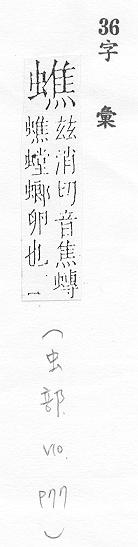 36
字彙
蟭
玆消切音焦蟭
蟭螳螂卵也 一
(虫部. V10. P77)